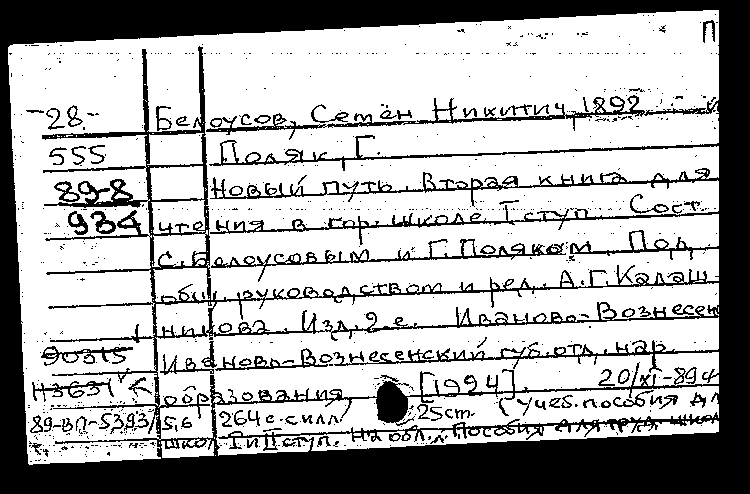 П
28. Белоусов, Семён Никитич, 1892 - и
555 Поляк, Г.
89-8 Новый путь. Вторая книга для
934 чтения в гор. школе I ступ. Сост.
С. Белоусовым и Г. Поляком. Под
общ. руководством и ред. А.Г. Калаш-
никова. Изд. 2-е. Иваново-Вознесен
90315 Иваново-Вознесенский губ. отд. нар.
Н3631 образования, [1924]. 20/XI-89г
89-ВП-5393/5,6 264 с. с илл. 25 cm (Учеб. пособия дл
школ I и II ступ. На обл.: Пособия для труд. школ